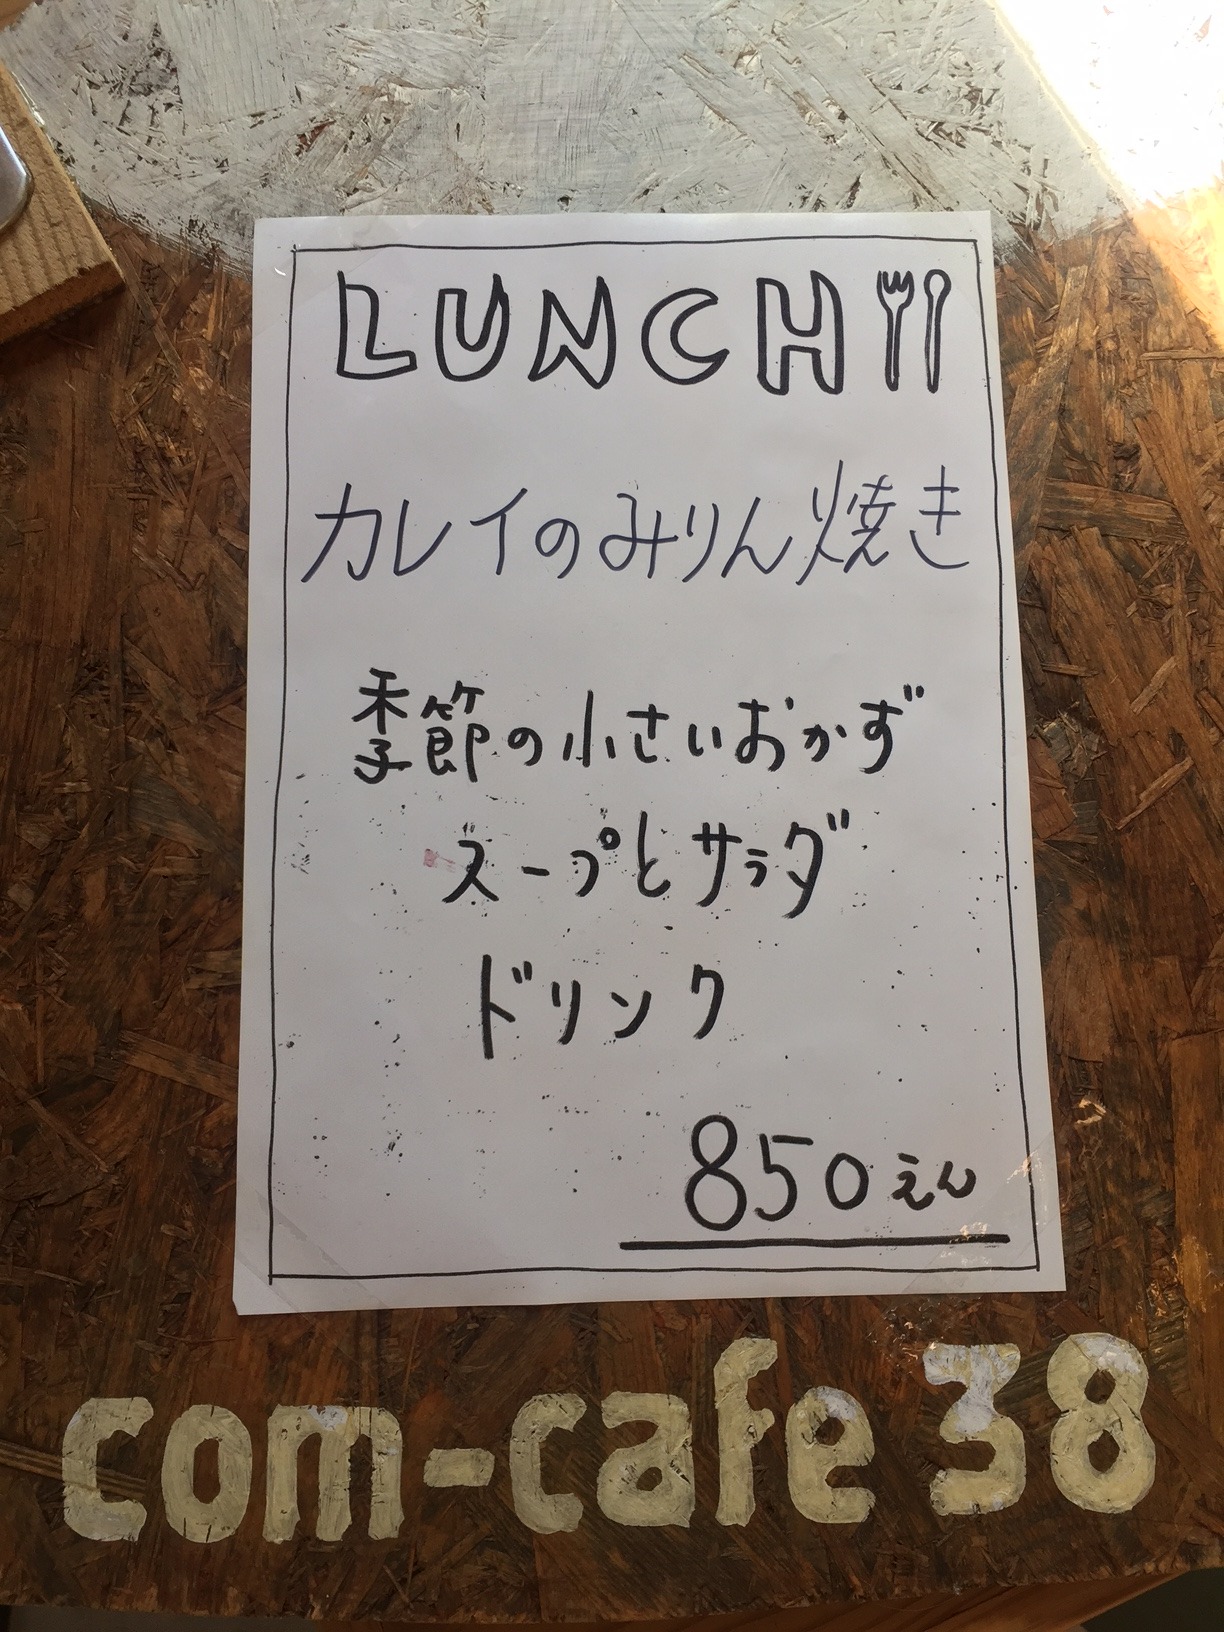 LUNCH
カレイのみりん焼き
季節の小さいおかず
スープとサラダ
ドリンク
850えん
com-cafe 38